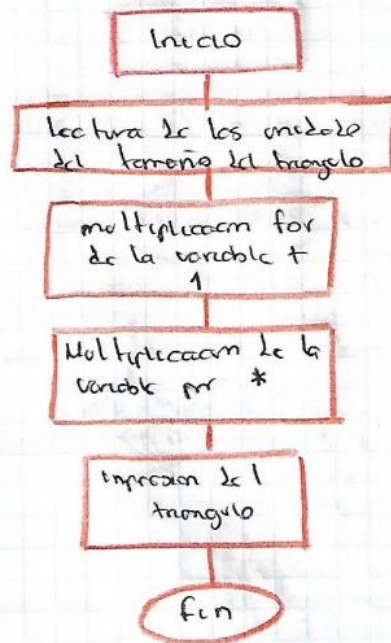 Inicio
lectura de los unidade
del tamaño del triangulo
multiplicacion for
de la variable +
1
Multiplicacion de la
variable por *
impresion del
triangulo
fin